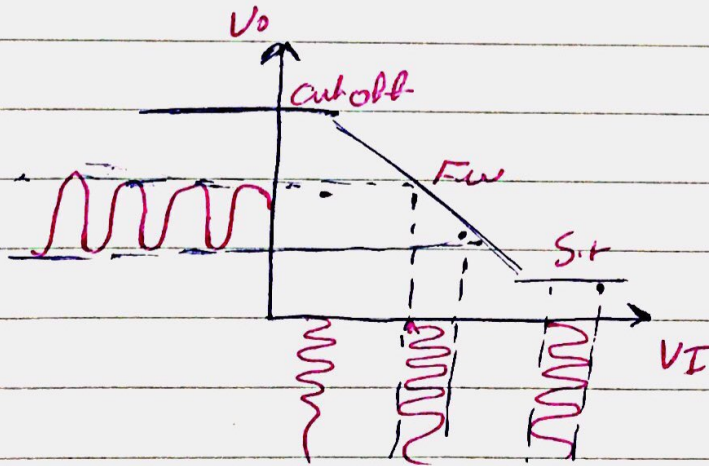 Vo
cutoff
Fw
Sat
VI